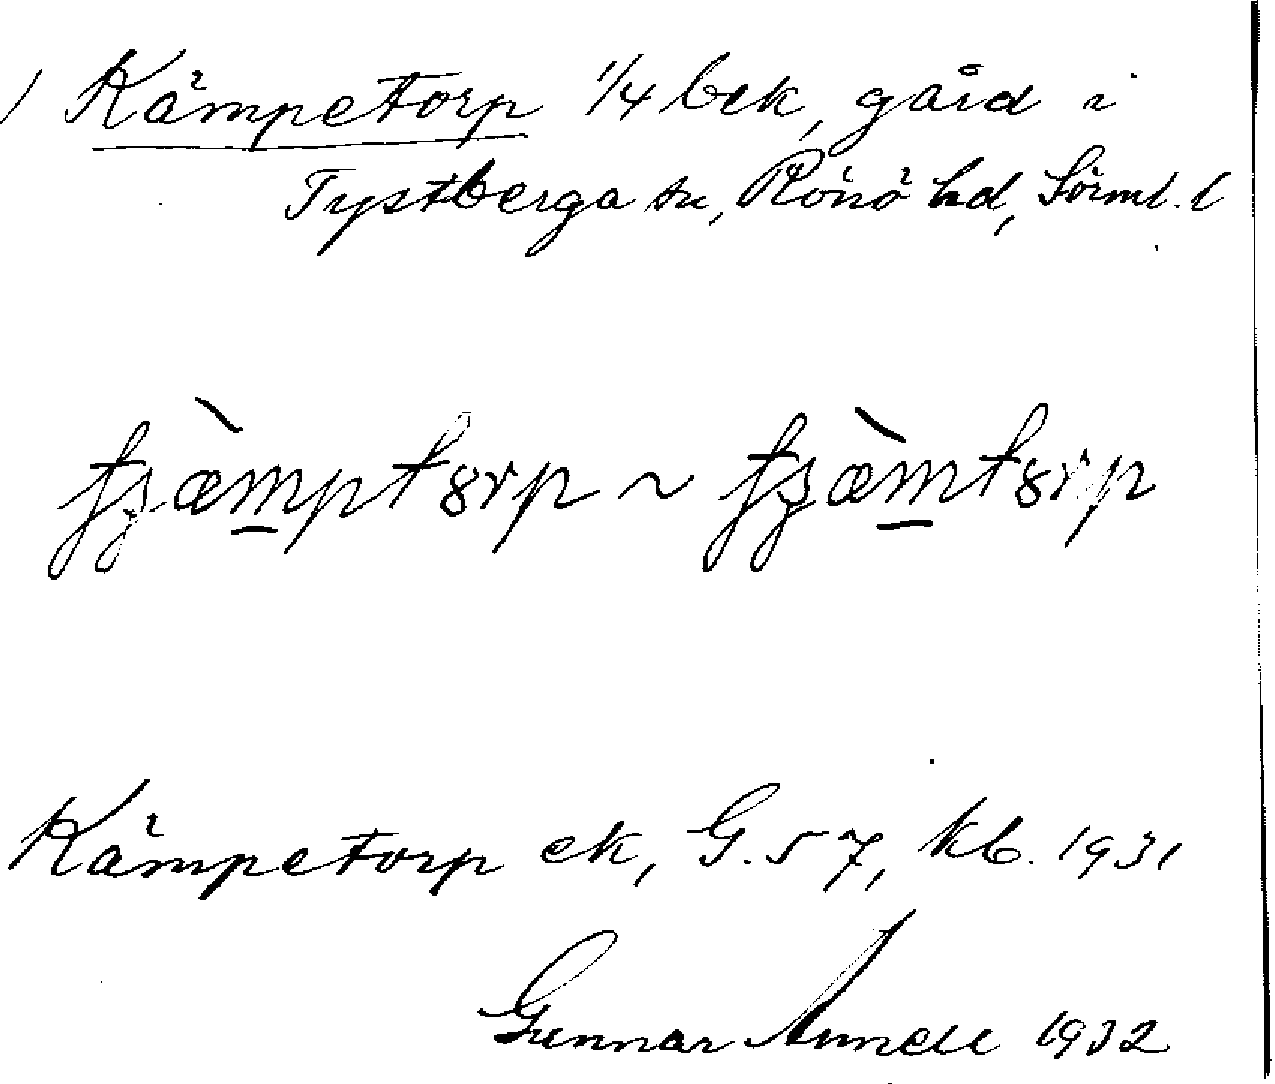 / Kämpetorp 1/4 bek, gård i
Tystberga sn, Rönö hd, Sörml. l
tʒæ̀mptȣrp ~ tʒæ̀mtȣrp
Kämpetorp ek, G. 57, kb. 1931
Gunnar 1932